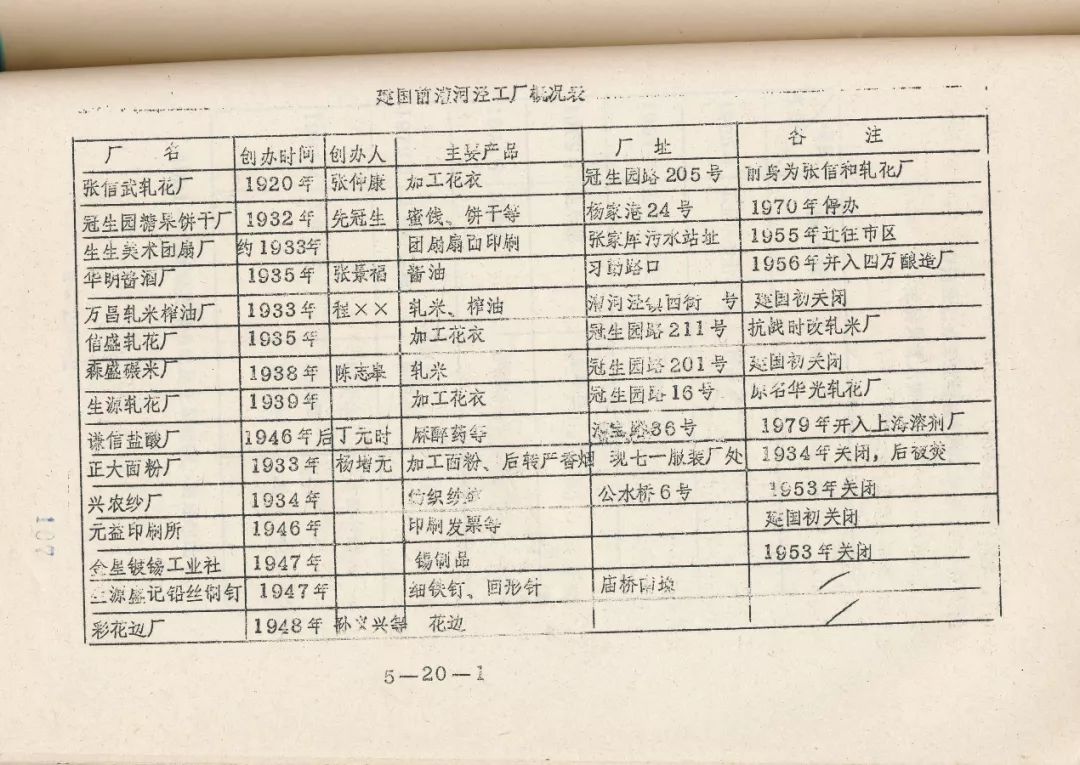 建国前漕河泾工厂概况表
厂 名 创办时间 创办人 主要产品 厂 址 备 注
张信武轧花厂 1920年 张仲康 加工花衣 冠生园路205号 前身为张信和轧花厂
冠生园糖果饼干厂 1932年 冼冠生 蜜饯、饼干等 杨家港24号 1970年停办
生生美术团扇厂 约1933年 团扇扇面印刷 张家厍污水站址 1955年迁往市区
华明酱酒厂 1935年 张景福 酱油 习勤路口 1956年并入四万酿造厂
万昌轧米榨油厂 1933年 程×× 轧米、榨油 漕河泾镇西街 号 建国初关闭
信盛轧花厂 1935年 加工花衣 冠生园路211号 抗战时改轧米厂
森盛碾米厂 1938年 陈志皋 轧米 冠生园路201号 建国初关闭
生源轧花厂 1939年 加工花衣 冠生园路16号 原名华光轧花厂
谦信盐酸厂 1946年后 丁元时 麻醉药等 路36号 1979年并入上海溶剂厂
正大面粉厂 1933年 杨增元 加工面粉、后转产香烟 现七一服装厂处 1934年关闭，后被焚
兴农纱厂 1934年 纺织纱 公水桥6号 1953年关闭
元益印刷所 1946年 印刷发票等 建国初关闭
金星镀锡工业社 1947年 锡制品 1953年关闭
生源盛记铅丝制钉 1947年 细铁钉、回形针 庙桥南 /
彩花边厂 1948年 孙义兴等 花边 /
5—20—1
201